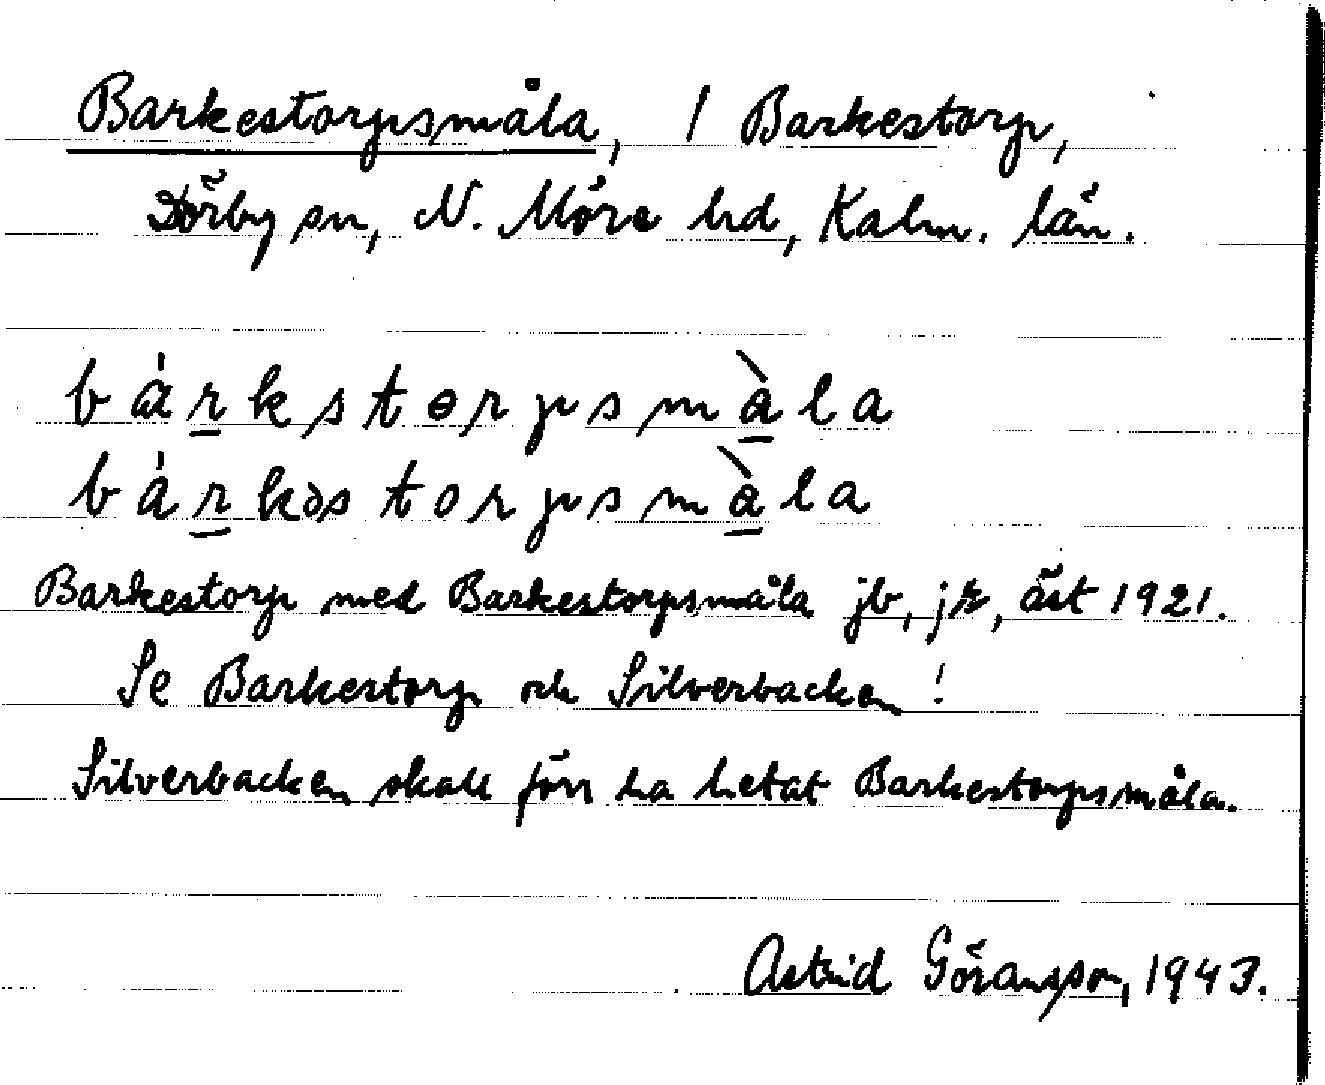 Barkestorpsmåla, / Barkestorp,
Dörby sn, N. Möre hd, Kalm. län.
bárkstɵrpsmàla
bárkəstorpsmàla
Barkestorp med Barkestorpsmåla jb, jr, äst 1921.
Se Barkestorp och Silverbacken!
Silverbacken skall förr ha hetat Barkestorpsmåla.
Astrid Göransson, 1943.